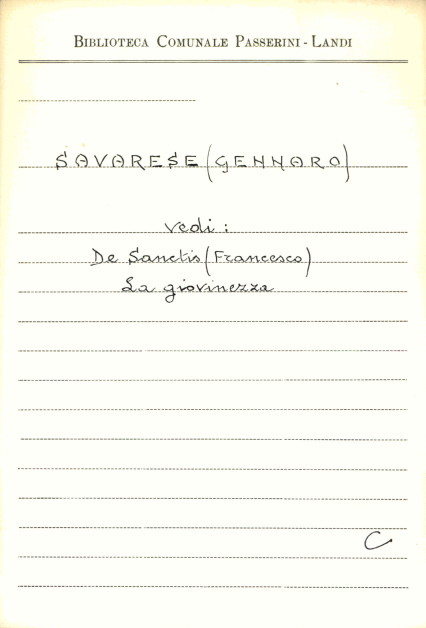 BIBLIOTECA COMUNALE PASSERINI - LANDI
SAVARESE (GENNARO)
vedi :
De Sanctis (Francesco)
La giovinezza
C